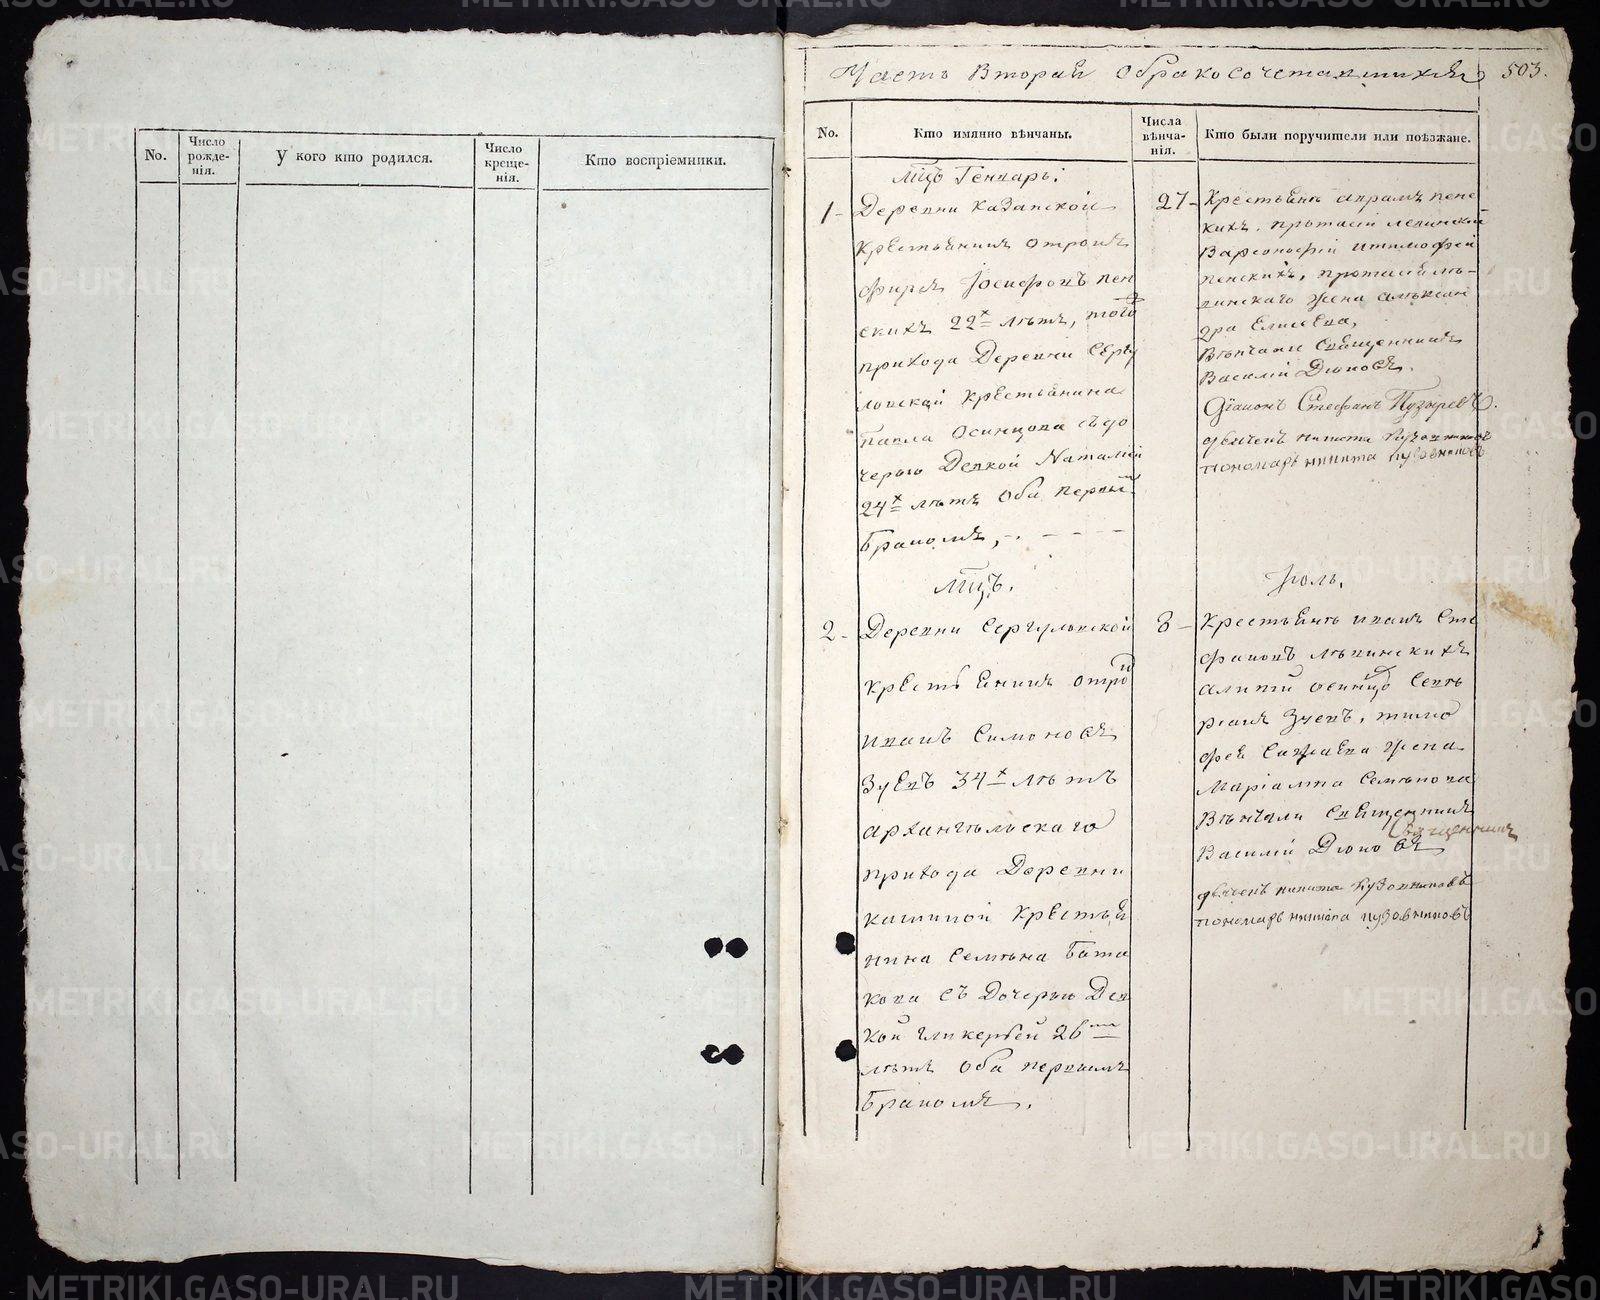 No.
Число рожде-нія.
У кого кто родился.
Число креще-нія.
Кто воспріемники.
Часть Вторая обракосочетавшихся
503.
No.
Кто имянно вѣнчаны.
Числа вѣнча-нія.
Кто были поручители или поѣзжане.
Мцъ Генварь:
1-
Деревни Казанской
крестьянинъ отрокъ
фирсъ Іосифовъ пен
скихъ 22х лѣтъ, того
прихода Деревни Сергу
ловской крестьянина
Павла Осинцова съ до
черью Девкой Наталіей
24х лѣтъ Оба первы
Бракомъ,
27-
Крестьянъ пенс
кихъ. протасій
Варсонофій итимофей
пенскихъ, протасія лѣ-
пинскаго жена алексан
дра Елисеева,
Вѣнчали Священникъ
Василій Дюковъ.
Діаконъ Стефанъ Пузыревъ.
дьячекъ никита Кузовниковъ
пономарь никита кузовниковъ
Мцъ.
Июль.
2-
Деревни Сергуловской
крестьянинъ отро
иванъ Симоновъ
Зуевъ 34х лѣтъ
архангельскаго
прихода Деревни
кашиной крестья
нина Семена Бата
кова съ Дочерью Дев
кой гликерьей 26ти
лѣтъ Оба первымъ
Бракомъ.
8-
Крестьянъ иванъ Сте
фановъ лѣпинскихъ
алипій осинцо Севѣ
рьянъ Зуевъ, тимо
фея жена
Маріамна Семенова
Вѣнчали Священникъ
Священникъ
Василій Дюковъ
дьячекъ никита Кузовниковъ
пономарь никита кузовниковъ
METRIKI.GASO-URAL.RU